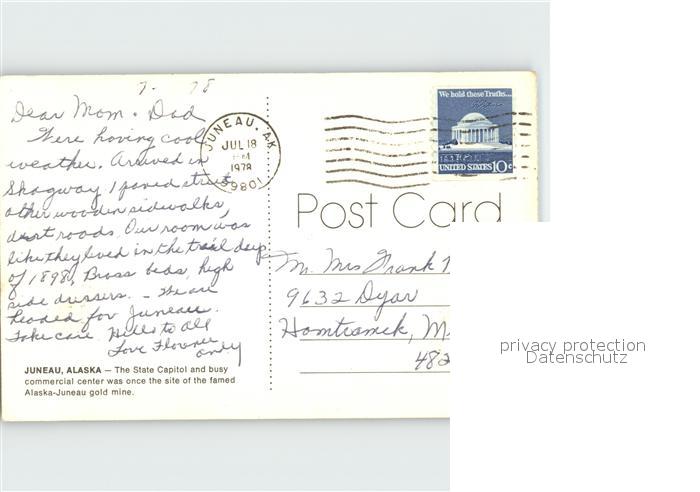 7. 78
Dear Mom & Dad
Were having cool
weather. Arrived in
Skagway 1 paved street
other wooden sidewalks,
dirt roads. Our room was
like they lived in the trail days
of 1898. Brass beds, high
side dressers. - We are
headed for Juneau.
Take care. Hello to All
Love
JUNEAU, ALASKA — The State Capitol and busy
commercial center was once the site of the famed
Alaska-Juneau gold mine.
JUNEAU, AK
JUL 18
PM
1978
99801
We hold these Truths...
UNITED STATES 10c
Post Card
Mr. Mrs Frank
9632 Dyar
Hamtramck, M
482
privacy protection
Datenschutz